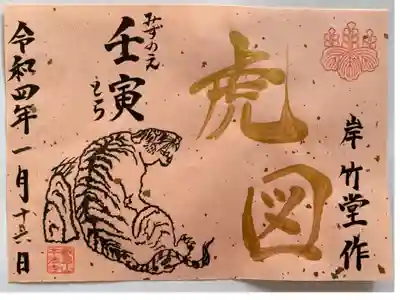 岸竹堂作
虎図
みずのえ
壬寅
とら
令和四年一月十六日